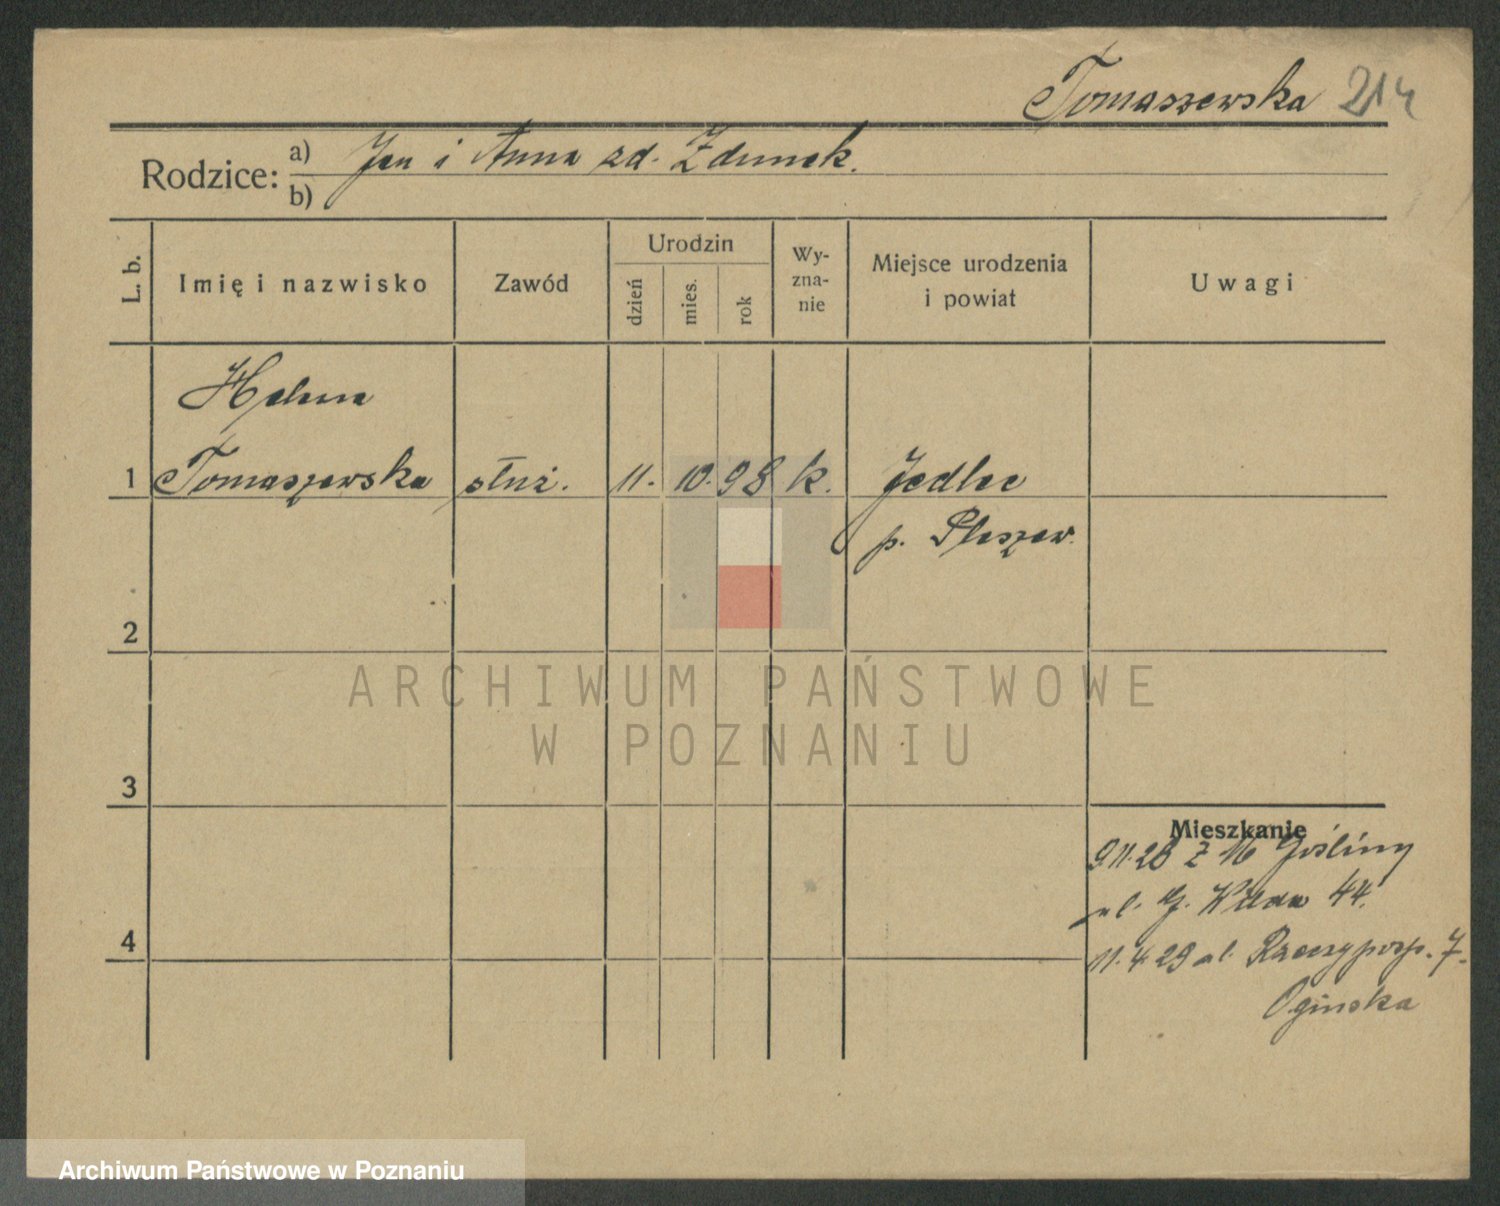 Tomaszewska 214
Rodzice: a) Jan i Anna zd. Zdunek.
b)
L. b.
Imię i nazwisko
Zawód
Urodzin
dzień
mies.
rok
Wy-
zna-
nie
Miejsce urodzenia
i powiat
Uwagi
Helena
1 Tomaszewska służ. 11. 10. 98 k. Jedlec
p. Pleszew.
2
ARCHIWUM PAŃSTWOWE
W POZNANIU
3
Mieszkanie
9.11.26 z M Gośliny
ul. G. Wilda 44.
4
11.4.29 ul. Rzeczyposp. 7.
Ogińska
Archiwum Państwowe w Poznaniu